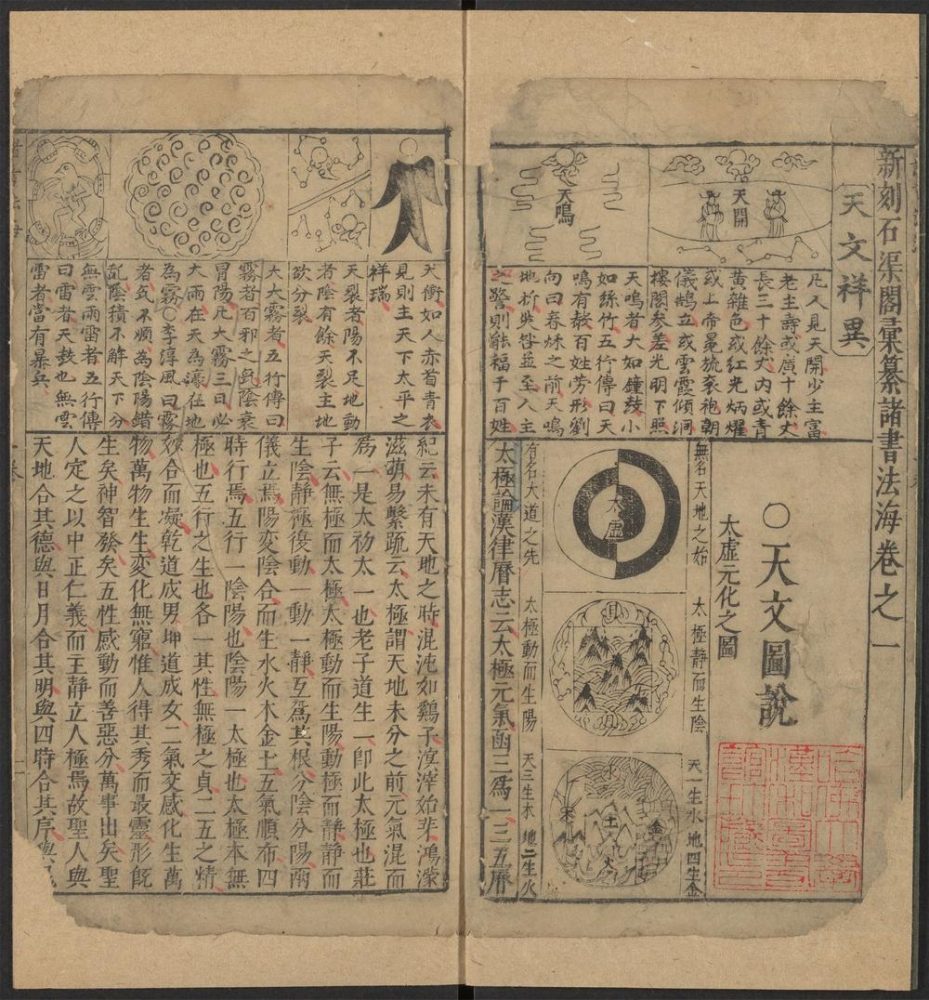 新刻石渠閣彙纂諸書法海卷之一
天文祥異
天開
天鳴
凡人見天開少主富
老主壽或廣十餘丈
長三十餘丈內或青
黃雜色或紅光炳耀
或上帝冕旒袞袍朝
儀鵠立或雲霞傾洞
樓閣參差光明下照
天鳴者大如鐘鼓小
如絲竹五行傳曰天
鳴有聲百姓勞形劉
向曰春秋之前天鳴
地折災咎並至人主
之警則能福于百姓
〇天文圖說
太虛元化之圖
無名天地之始
太極靜而生陰
天一生水 地四生金
太虛
水
土
金
木
火
有名大道之先
太極動而生陽
天三生木 地二生火
太極論漢律曆志云太極元氣函三爲一三五曆
天衝如人赤首青衣
見則主天下太平之
祥瑞
天裂者陽不足地動
者陰有餘天裂主地
欲分裂
大大霧者五行傳曰
霧者百邪之氣陰衰
冒陽凡大霧三日必
大雨在天為濛在地
為霧〇李淳風曰霧
者氣不順為陰陽錯
亂陰積不解天下分
無雲雨雷者五行傳
曰雷者天鼓也無雲
雷者當有暴兵
紀云未有天地之時混沌如鷄子溟涬始芽鴻濛
滋萌易繫疏云太極謂天地未分之前元氣混而
爲一是太初太一也老子道生一卽此太極也莊
子云無極而太極太極動而生陽動極而靜靜而
生陰靜極復動一動一靜互爲其根分陰分陽兩
儀立焉陽变陰合而生水火木金土五氣順布四
時行焉五行一陰陽也陰陽一太極也太極本無
極也五行之生也各一其性無極之貞二五之精
妙合而凝乾道成男坤道成女二氣交感化生萬
物萬物生生変化無窮惟人得其秀而最靈形旣
生矣神智發矣五性感動而善惡分萬事出矣聖
人定之以中正仁義而主靜立人極焉故聖人與
天地合其德與日月合其明與四時合其序與